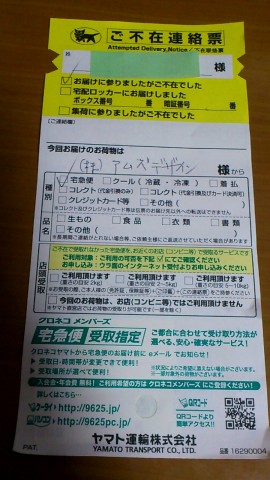 ご不在連絡票
Attempted Delivery Notice / 不在联络票
様
お届けに参りましたがご不在でした
宅配ロッカーにお届けしました
ボックス番号 番 暗証番号 番
集荷に参りましたがご不在でした
(ご連絡欄)
今回お届けのお荷物は
(株)アムズデザイン 様から
種別
宅急便 クール(冷蔵・冷凍) 着払
コレクト(代金引換のみ) コレクト(代金引換及びカード決済可)
クレジットカード等 その他( )
品名
生もの 食品 衣類 書類
その他( )
店頭受取
ご利用頂けます
(重さの目安 2kg)
ご利用頂けます
(重さの目安 2~5kg)
ご利用頂けます
(重さの目安 5~10kg)
今回のお荷物は、お店(コンビニ等)ではご利用頂けません
クロネコ メンバーズ
宅急便 受取指定
ご都合に合わせて受け取り方法が
選べる、安心・確実なサービス!
クロネコヤマトから宅急便のお届け前に eメール でお知らせ!
受取日・時間帯が変更できて便利!
受取場所が選べて便利!
入会金・年会費 無料! ご利用希望の方は クロネコメンバーズ にご登録ください!
ケータイ http://9625.jp/
パソコン http://9625pc.jp/
QRコード
QRコードより
簡単アクセス!!
PAT.
ヤマト運輸株式会社
YAMATO TRANSPORT CO., LTD.
品番 16290004